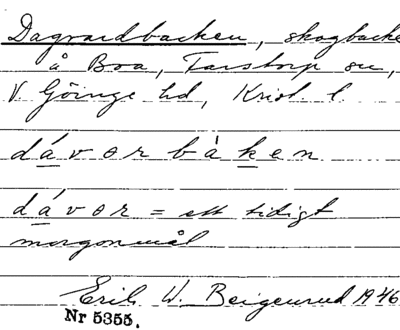 Dagvardbacken, skogbacke
å Boa, Farstorp sn,
V. Göinge hd, Krist. l.
dávərbàken
dávər = ett tidigt
morgonmål
Erik W. Beigenrud 1946
Nr 5355.